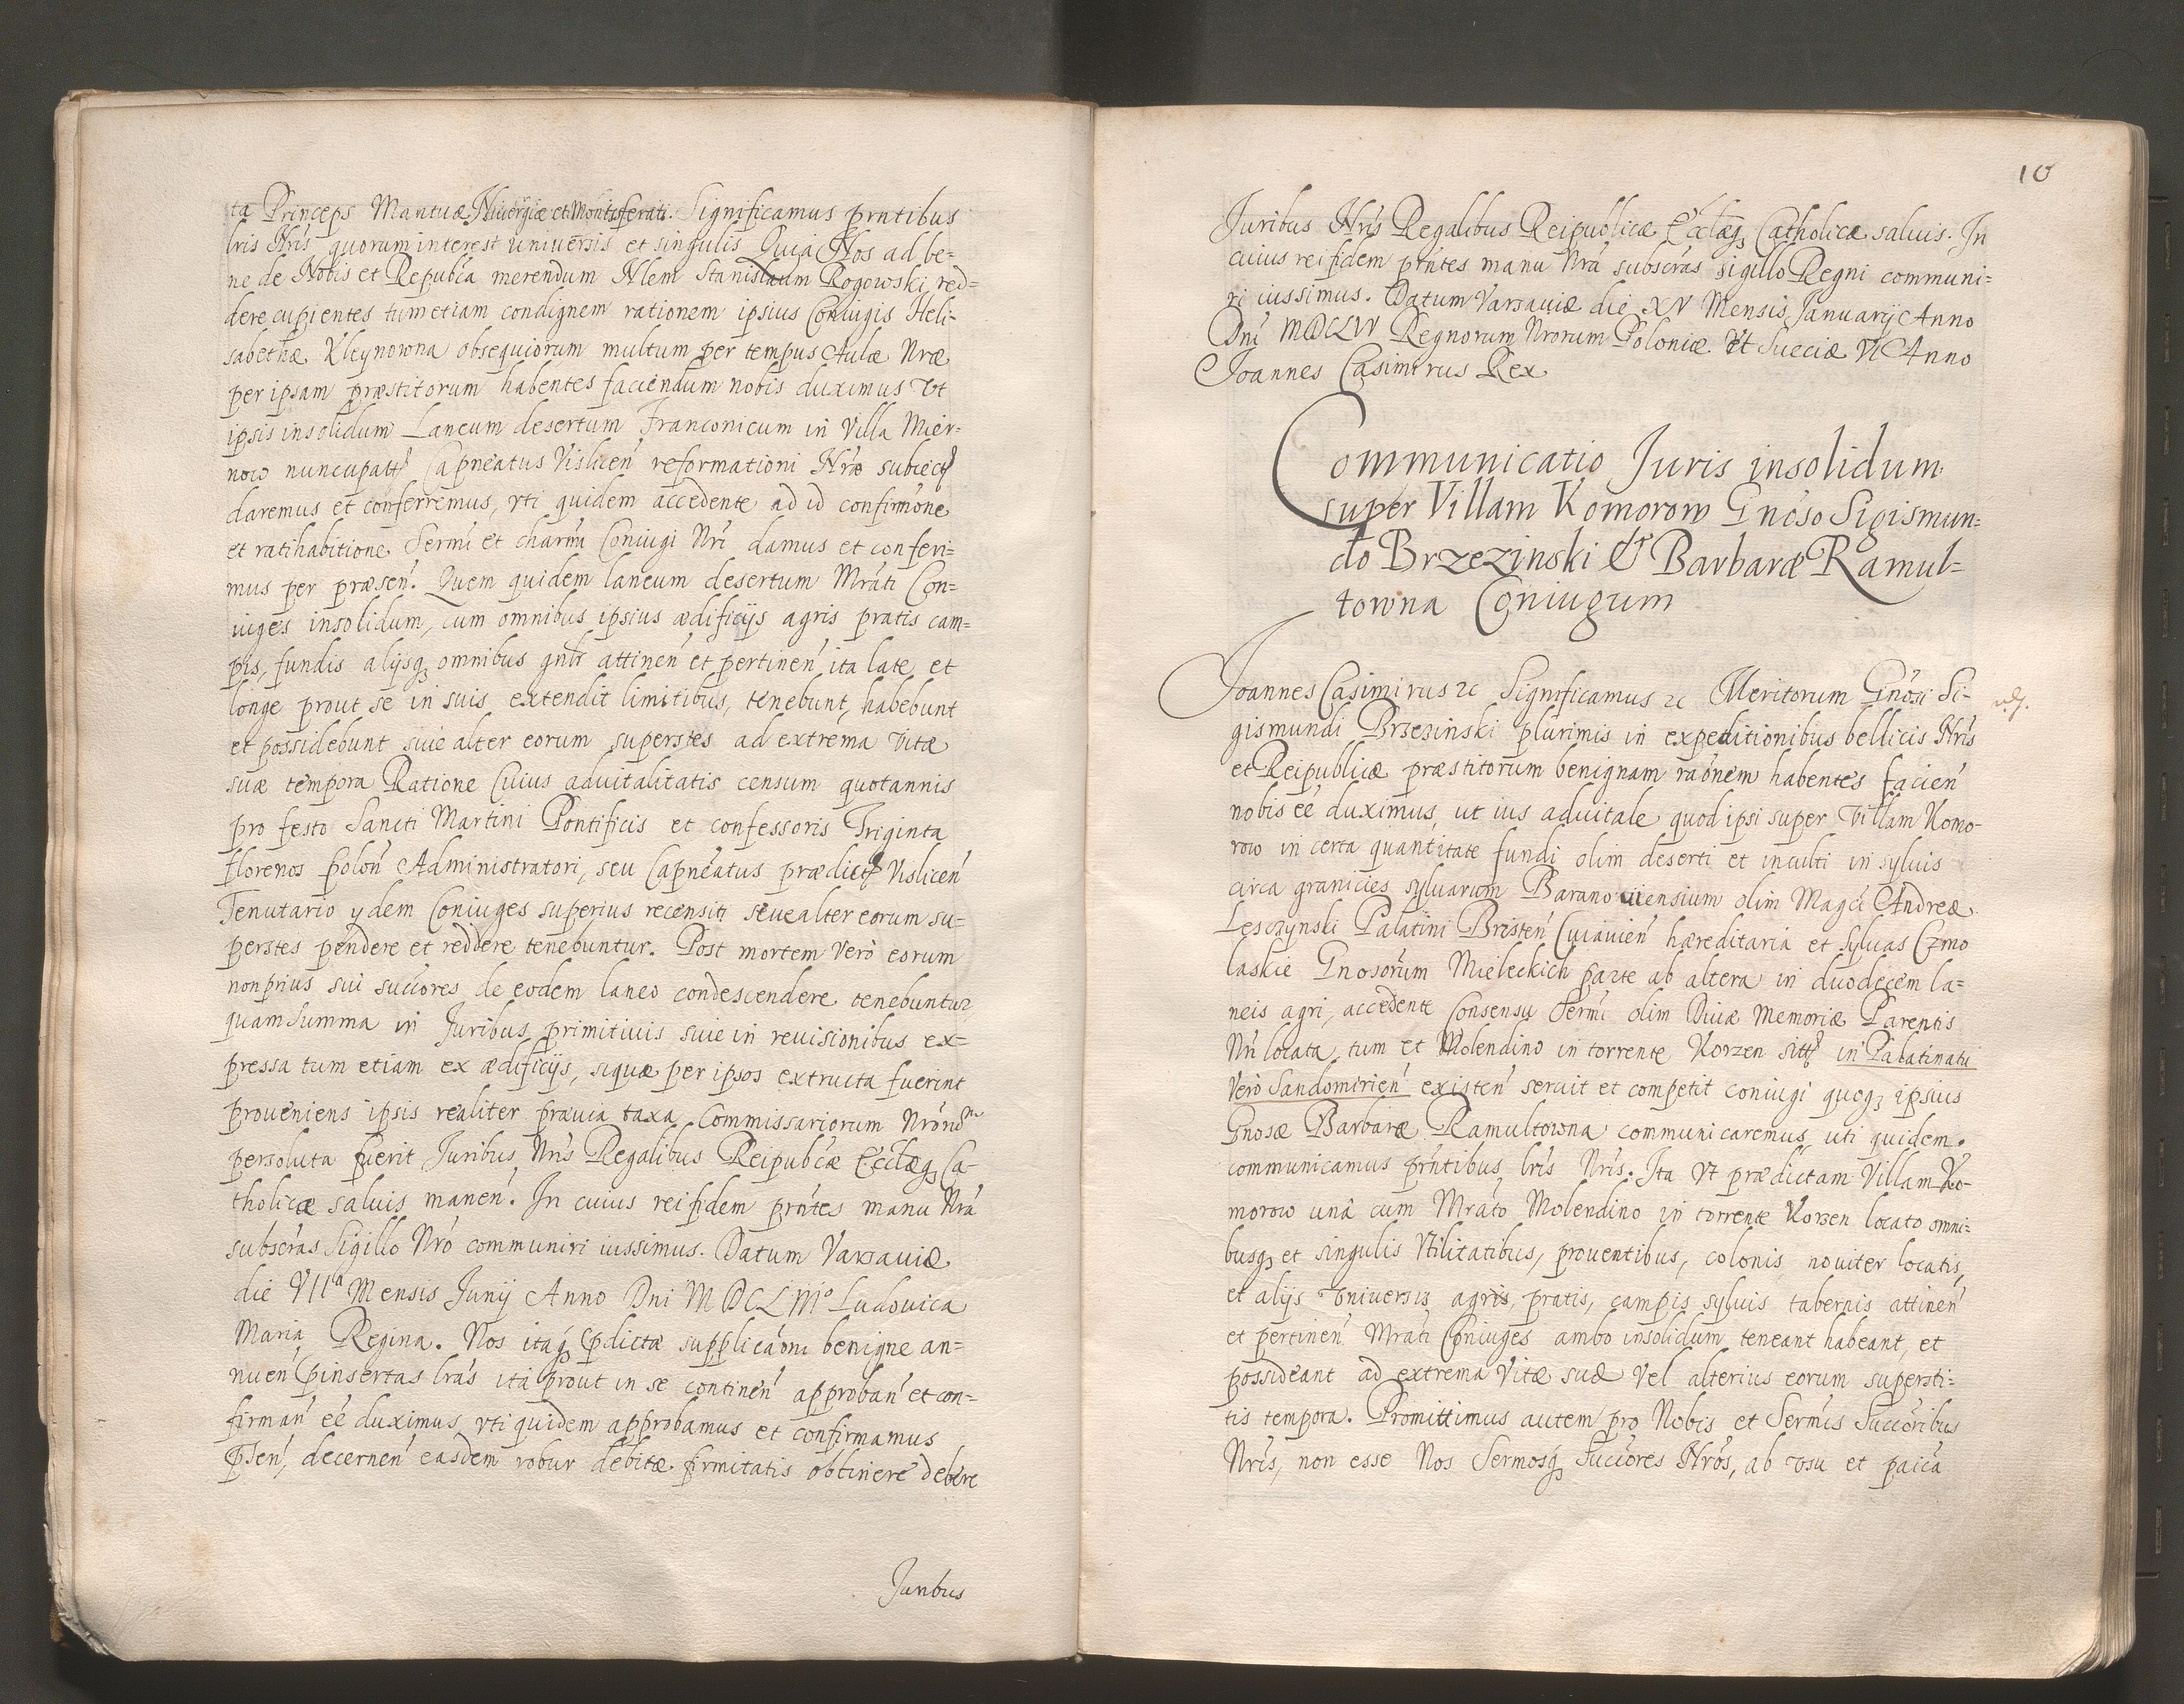 ta Princeps Mantuæ Niuerniæ et Montisferati. Significamus prntibus
lris Nris quorum interest universis et singulis Quia Nos ad be=
ne de Nobis et Repubca merendum Nlem Stanislaum Rogowski red=
dere cupientes tum etiam condignem rationem ipsius Coniugis Heli=
sabethæ Kleynowna obsequiorum multum per tempus Aulæ Nræ
per ipsam præstitorum habentes faciendum nobis duximus Vt
ipsis insolidum Laneum desertum Franconicum in Villa Mier=
now nuncupatt Capneatus Vislicen reformationi Nræ subiect
daremus et conferremus, vti quidem accedente ad id confirmone
et ratihabitione Sermi et charmi Coniugi Nri damus et conferi=
mus per præsen. Quem quidem laneum desertum Mrati Con=
iuges insolidum, cum omnibus ipsius ædificijs agris pratis cam=
pis, fundis alijsq omnibus gnlr attinen et pertinen ita late et
longe prout se in suis extendit limitibus, tenebunt, habebunt
et possidebunt suie alter eorum superstes ad extrema Vitæ
suæ tempora Ratione Cuius aduitalitatis censum quotannis
pro festo Sancti Martini Pontificis et confessoris Triginta
florenos polon Administratori, seu Capneatus prædict Vislicen
Tenutario ydem Coniuges superius recensiti seue alter eorum su=
perstes pendere et reddere tenebuntur. Post mortem Verò eorum
non prius sui succores de eodem laneo condescendere tenebuntur
quam Summa in Juribus primitiuis suie in reuisionibus ex=
pressa tum etiam ex ædificijs, siquæ per ipsos extructa fuerint
proueniens ipsis realiter præuia taxa Commissariorum Nrorum
persoluta fuerit Juribus Nris Regalibus Reipubcæ Ecclæq Ca-
tholicæ saluis manen. In cuius rei fidem prntes manu Nra
subscras Sigillo Nro communiri iussimus. Datum Varsauiæ
die VIIa Mensis Junij Anno Dni MDCLIIIo Ludouica
Maria Regina. Nos itaq pdictæ supplicaoni benigne an=
nuen pinsertas lras ita prout in se continen approban et con=
firman ee duximus vti quidem approbamus et confirmamus
Psen, decernen easdem robur debitæ firmitatis obtinere debere
Juribus
10
Juribus Nris Regalibus Reipublicæ Ecclæq Catholicæ saluis. In
cuius rei fidem prntes manu Nra subscras sigillo Regni communi=
ri iussimus. Datum Varsauiæ die XV Mensis Januarij Anno
Dni MDCLIV Regnorum Nrorum Poloniæ Vt Sueciæ VI Anno
Joannes Casimirus Rex
Communicatio Juris insolidum
super Villam Komorow Gnoso Sigismun=
do Brzezinski & Barbaræ Ramul=
towna Coniugum
Joannes Casimirus zc Significamus zc Meritorum Gnosi Si-
gismundi Brzezinski plurimis in expeditionibus bellicis Nris
et Reipublicæ præstitorum benignam raonem habentes facien
nobis ee duximus, ut ius aduitale quod ipsi super Villam Komo-
row in certa quantitate fundi olim deserti et inculti in syluis
circa granicies syluarum Baranouiensium olim Magci Andreæ
Lesczynski Palatini Bresten Cuiauien hæreditaria et syluas Czmo
laskie Gnosorum Mieleckich parte ab altera in duodecem la=
neis agri, accedente Consensu Sermi olim Diuæ Memoriæ Parentis
Nri locata, tum et Molendino in torrente Korzen sitt in Palatinatu
Verò Sandomirien existen seruit et competit coniugi quoq ipsius
Gnosæ Barbaræ Ramultowna communicaremus, uti quidem
communicamus prntibus lris Nris. Ita Vt prædictam Villam Ko-
morow unà cum Mrato Molendino in torrente Korzen locato omni=
busq et singulis Vtilitatibus, prouentibus, colonis nouiter locatis,
et alijs Vniuersis agris, pratis, campis syluis tabernis attinen
et pertinen Mrati Coniuges ambo insolidum teneant habeant, et
possideant ad extrema Vitæ suæ Vel alterius eorum supersti=
tis tempora. Promittimus autem pro Nobis et Sermis Succoribus
Nris, non esse Nos Sermosq Succores Nros, ab Vsu et paica